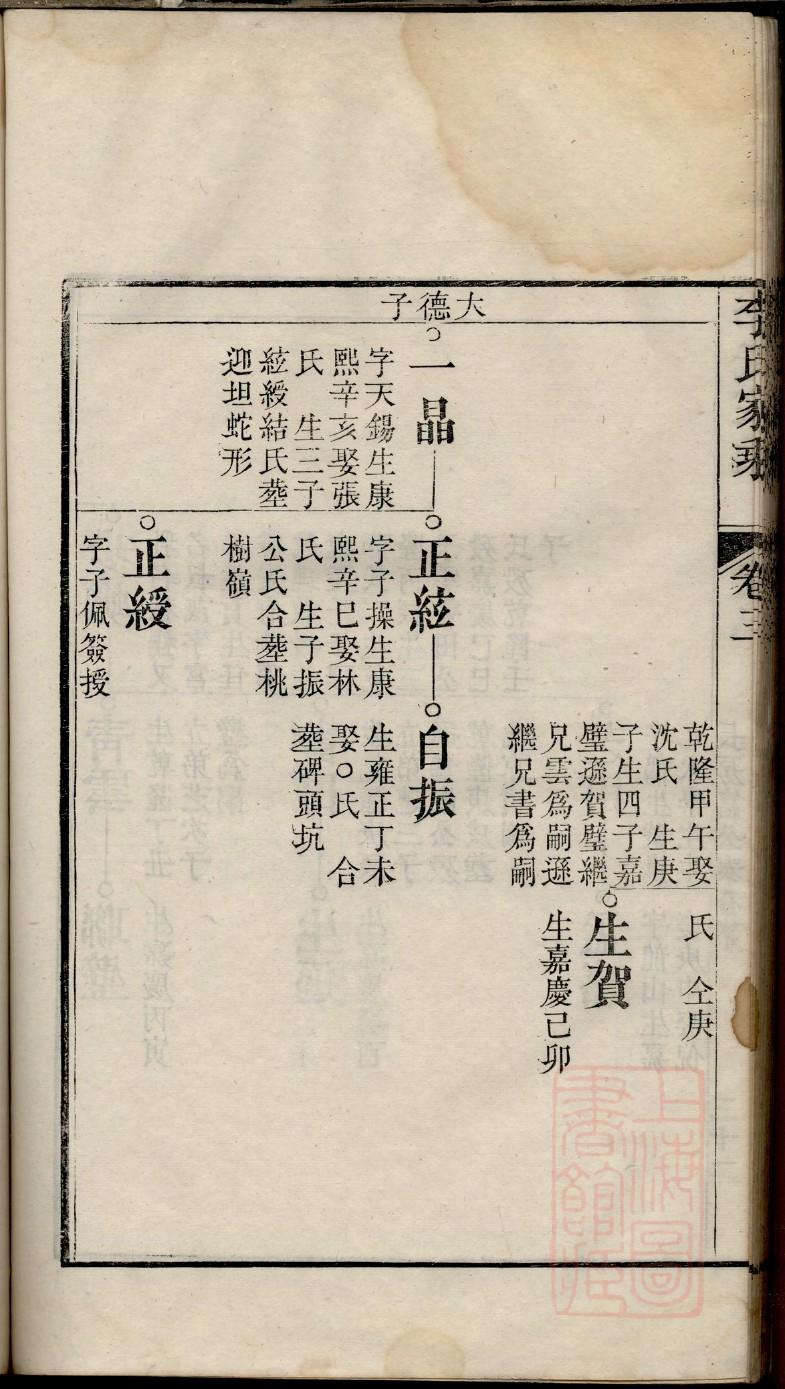 李氏家乘
卷三
乾隆甲午娶
沈氏　生庚
子生四子嘉
璧遜賀璧繼
兄雲爲嗣遜
繼兄書爲嗣
氏　仝庚
生賀
生嘉慶己卯
大德子
一品
字天錫生康
熙辛亥娶張
氏　生三子
絃綬結氏塟
迎坦蛇形
正絃
字子操生康
熙辛巳娶林
氏　生子振
公氏合塟桃
樹嶺
自振
生雍正丁未
娶○氏　合
塟碑頭坑
正綬
字子佩簽授
上海圖
書館藏